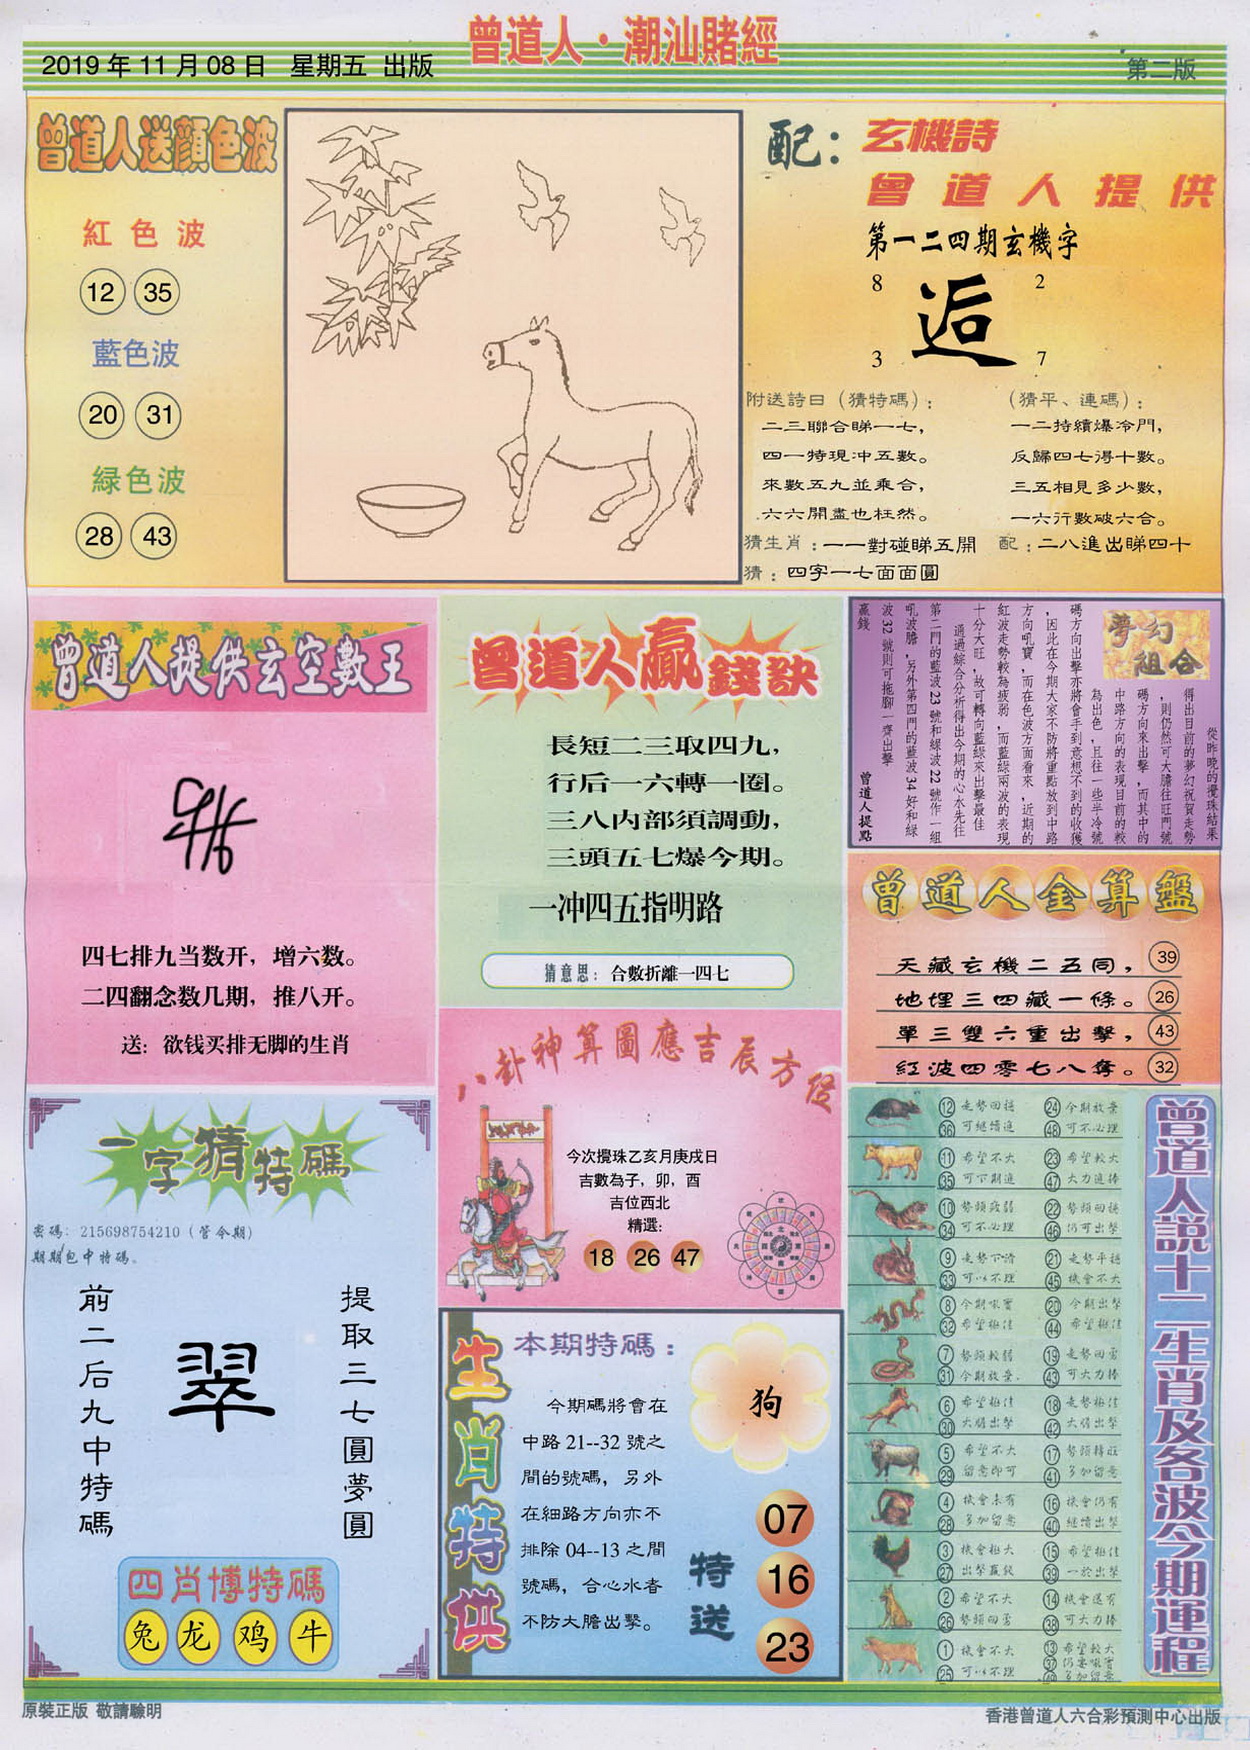 曾道人·潮汕賭經
2019年11月08日 星期五 出版
第二版
曾道人送顔色波
紅色波
12 35
藍色波
20 31
緑色波
28 43
配：玄機詩
曾道人提供
第一二四期玄機字
8 2
逅
3 7
附送詩曰（猜特碼）：
二三聯合睇一七，
四一特現冲五數。
來數五九並乘合，
六六開盡也枉然。
（猜平、連碼）：
一二持續爆冷門，
反歸四七得十數。
三五相見多少數，
一六行數破六合。
猜生肖：一一對碰睇五開 配：二八進出睇四十
猜：四字一七面面圓
曾道人提供玄空數王
四七排九当数开，增六数。
二四翻念数几期，推八开。
送：欲钱买排无脚的生肖
曾道人贏錢訣
長短二三取四九，
行后一六轉一圈。
三八内部須調動，
三頭五七爆今期。
一冲四五指明路
猜意思：合數折離一四七
夢幻組合
從昨晚的攪珠結果
得出目前的夢幻祝賀走勢
，則仍然可大膽往旺門號
碼方向來出擊，而其中的
中路方向的表現目前的較
為出色，且往一些半冷號
碼方向出擊亦將會手到意想不到的收獲
，因此在今期大家不防將重點放到中路
方向吼寶，而在色波方面看來，近期的
紅波走勢較為疲弱，而藍綠兩波的表現
十分大旺，故可轉向藍綠來出擊最佳
通過綜合分析得出今期的心水先往
第二門的藍波23號和綠波22號作一組
吼波膽，另外第四門的藍波34好和綠
波32號則可拖腳一齊出擊
贏錢
曾道人提點
曾道人金算盤
天藏玄機二五同， 39
地埋三四藏一條。 26
單三雙六重出擊， 43
紅波四零七八奪。 32
一字猜特碼
密碼：215698754210（管令期）
期期包中特碼。
提取三七圓夢圓
翠
前二后九中特碼
四肖博特碼
兔 龙 鸡 牛
八卦神算圖應吉辰方位
今次攪珠乙亥月庚戌日
吉數為子，卯，酉
吉位西北
精選：
18 26 47
生肖特供
本期特碼：
狗
今期碼將會在
中路21--32號之
間的號碼，另外
在細路方向亦不
排除04--13之間
號碼，合心水者
不防大膽出擊。
特送
07
16
23
曾道人説十二生肖及各波今期運程
12 走勢回穩 24 今期放棄
36 可繼續追 48 可不必理
11 希望不大 23 希望較大
35 可下期追 47 大力追捧
10 勢頭疲弱 22 勢頭回穩
34 可不必理 46 仍可出擊
9 走勢下滑 21 走勢平穩
33 可以不理 45 機會不大
8 今期吼寶 20 今期出擊
32 希望極佳 44 希望極佳
7 勢頭較弱 19 走勢回落
31 今期放棄 43 可大力捧
6 希望極佳 18 走勢極佳
30 大膽出擊 42 大膽出擊
5 希望不大 17 勢頭轉旺
29 留意即可 41 多加留意
4 機會未有 16 機會仍有
28 多加留意 40 繼續出擊
3 機會極大 15 希望極佳
27 出擊 39 一於出擊
2 希望不大 14 機會還有
26 勢頭回落 38 可大力捧
1 機會不大 13 希望較大
25 可以不理 37 仍要吼寶
49 多加留意
原裝正版 敬請驗明
香港曾道人六合彩預測中心出版